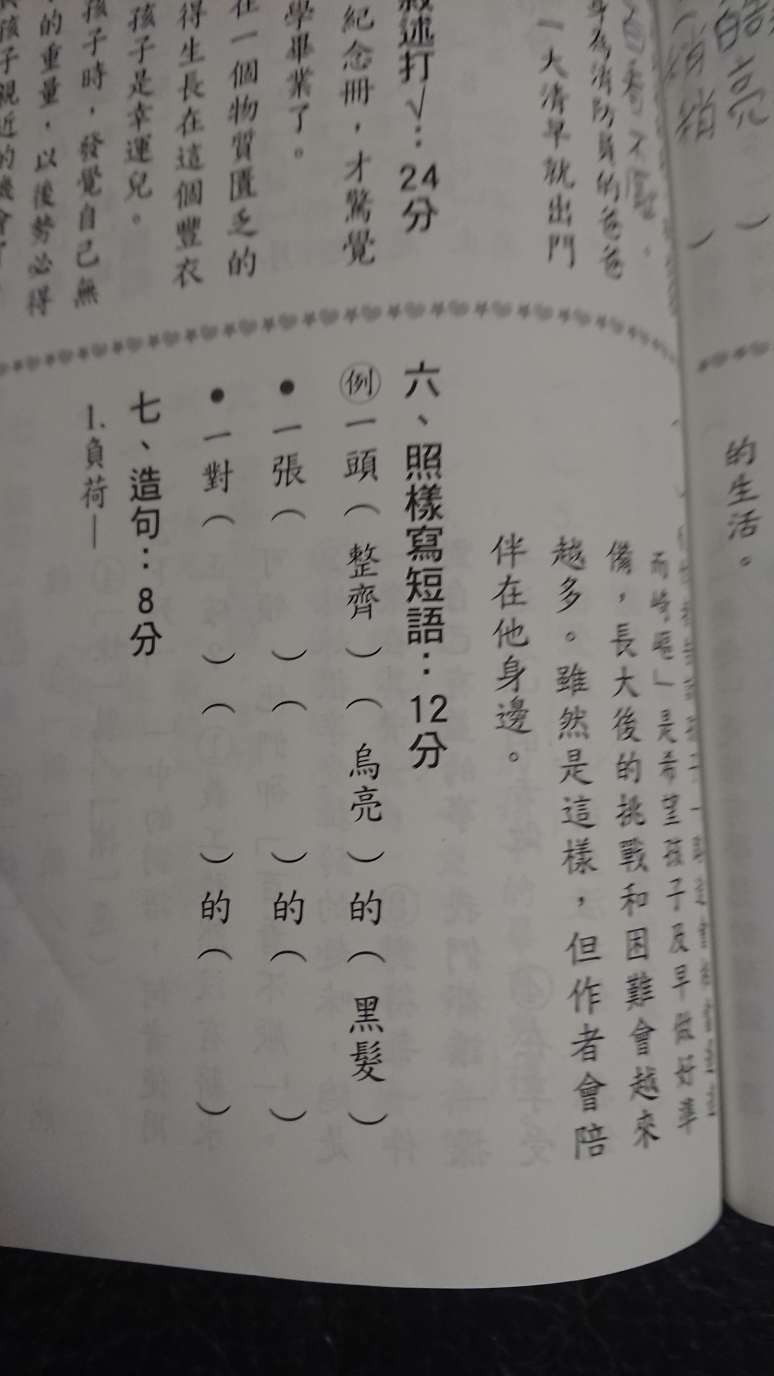 皓亮　）
（俏　）
身為消防員的爸爸
一大清早就出門
敘述打√：24分
紀念冊，才驚覺
學畢業了。
在一個物質匱乏的
得生長在這個豐衣
孩子是幸運兒。
孩子時，發覺自己無
的重量，以後勢必得
孩子親近的機會了
的生活。
而崎嶇」是希望孩子及早做好準
備，長大後的挑戰和困難會越來
越多。雖然是這樣，但作者會陪
伴在他身邊。
六、照樣寫短語：12分
例一頭（整齊）（烏亮）的（黑髮）
●一張（　）（　）的（　）
●一對（　）（　）的（　）
七、造句：8分
1.負荷—